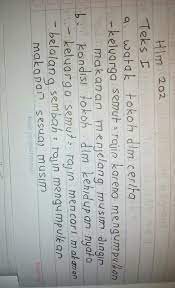 Hlm 202
Teks I
a. watak tokoh dlm cerita
- keluarga semut: rajin karena mengumpulkan
makanan menjelang musim dingin
b. kondisi tokoh dlm kehidupan nyata
- keluarga semut: rajin mencari makanan
- belalang sembah: rajin mengumpulkan
makanan sesuai musim